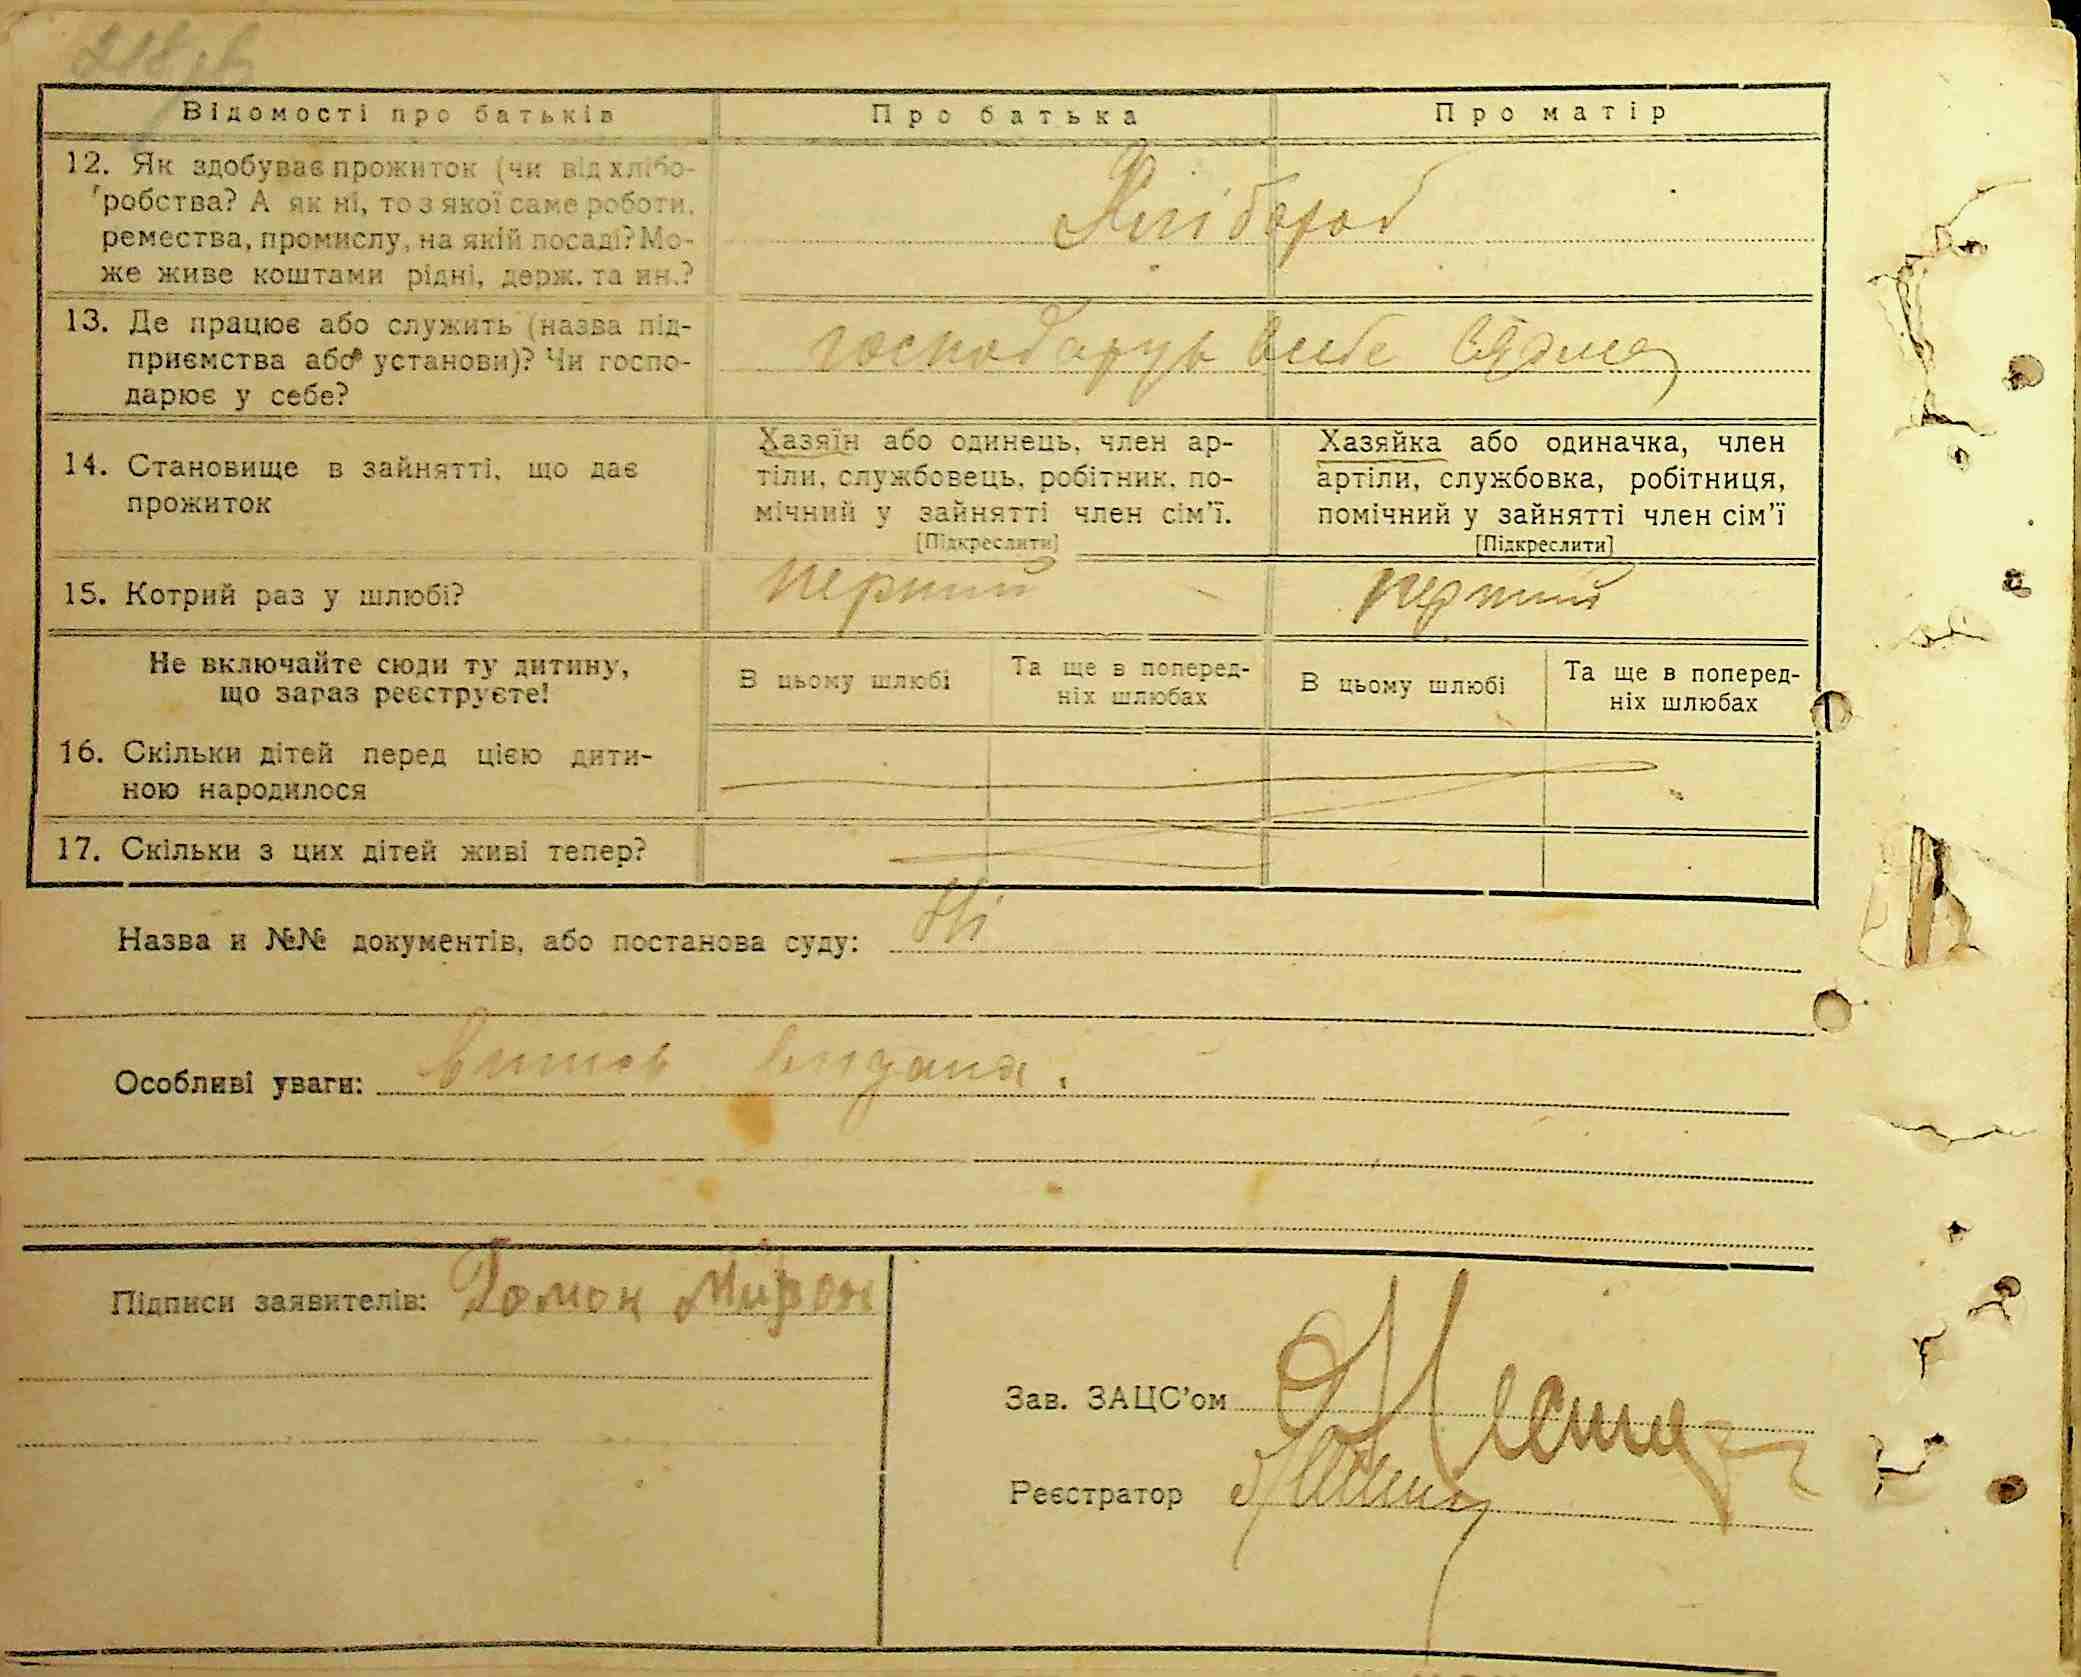 Відомості про батьків
Про батька
Про матір
12. Як здобуває прожиток (чи від хлібо-
робства? А як ні, то з якої саме роботи,
ремества, промислу, на якій посаді? Мо-
же живе коштами рідні, держ. та ин.?
Хлібороб
13. Де працює або служить (назва під-
приємства або установи)? Чи госпо-
дарює у себе?
господарує в себе вдома
14. Становище в зайнятті, що дає
прожиток
Хазяїн або одинець, член ар-
тіли, службовець, робітник, по-
мічний у зайнятті член сім'ї.
[Підкреслити]
Хазяйка або одиначка, член
артіли, службовка, робітниця,
помічний у зайнятті член сім'ї
[Підкреслити]
15. Котрий раз у шлюбі?
перший
перший
Не включайте сюди ту дитину,
що зараз реєструєте!
В цьому шлюбі
Та ще в поперед-
ніх шлюбах
В цьому шлюбі
Та ще в поперед-
ніх шлюбах
16. Скільки дітей перед цією дити-
ною народилося
17. Скільки з цих дітей живі тепер?
Назва и №№ документів, або постанова суду: Ні
Особливі уваги: Випись видана.
Підписи заявителів: Гомон Мирон
Зав. ЗАЦС'ом
Реєстратор